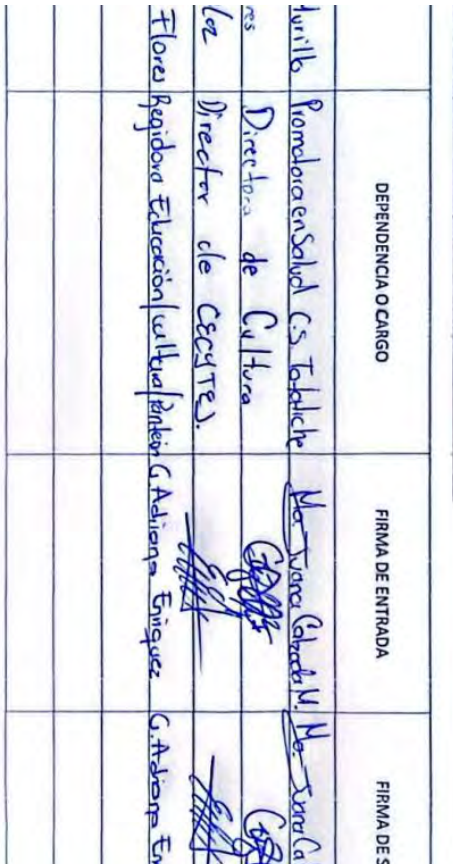 DEPENDENCIA O CARGO FIRMA DE ENTRADA FIRMA DE S
Promotora en Salud C.S Totatiche Ma. Juana Calzada M. Ma. Juana Ca
res Directora de Cultura
Director de CECYTEJ.
Flores Regidora Educación/cultura/ G. Adriana Enriquez G. Adriana En